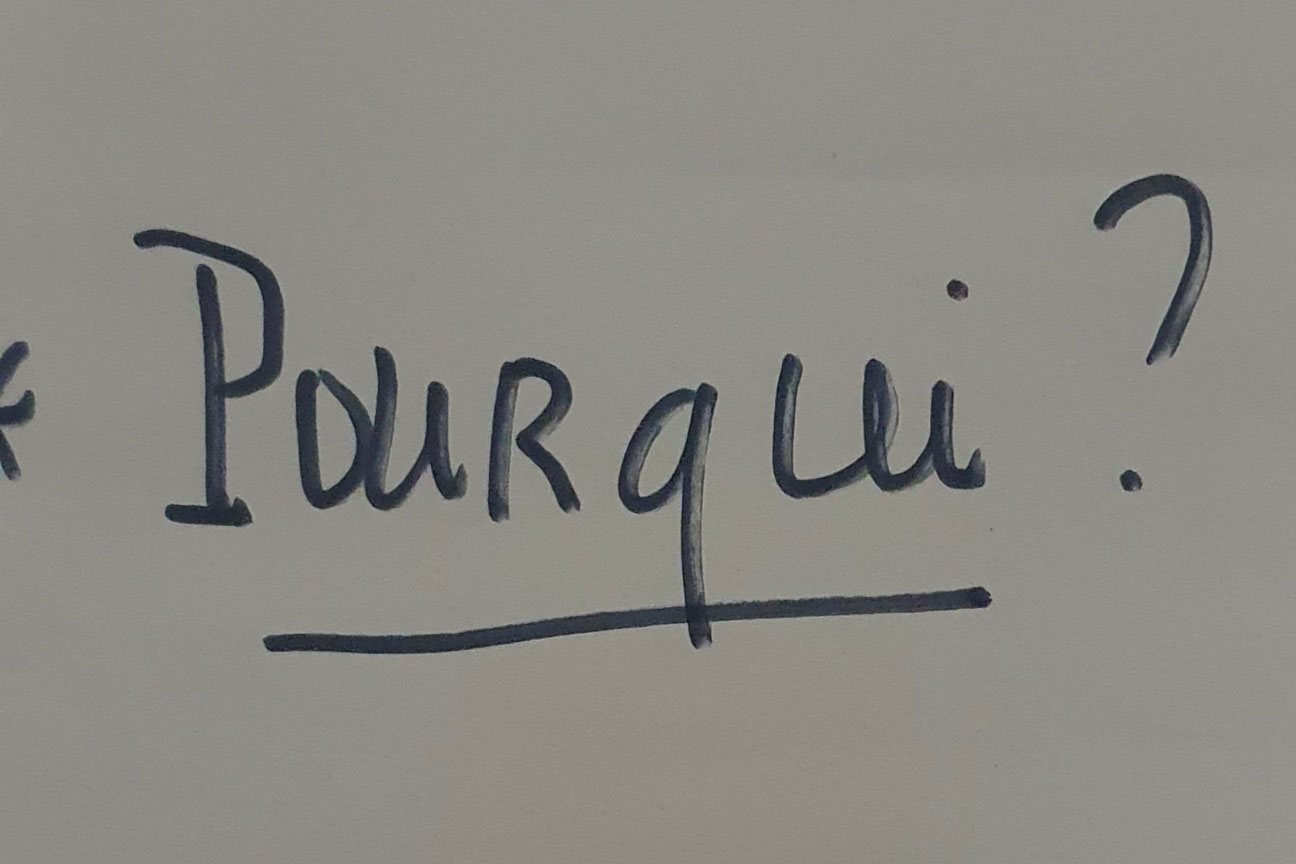 * Pour qui ?